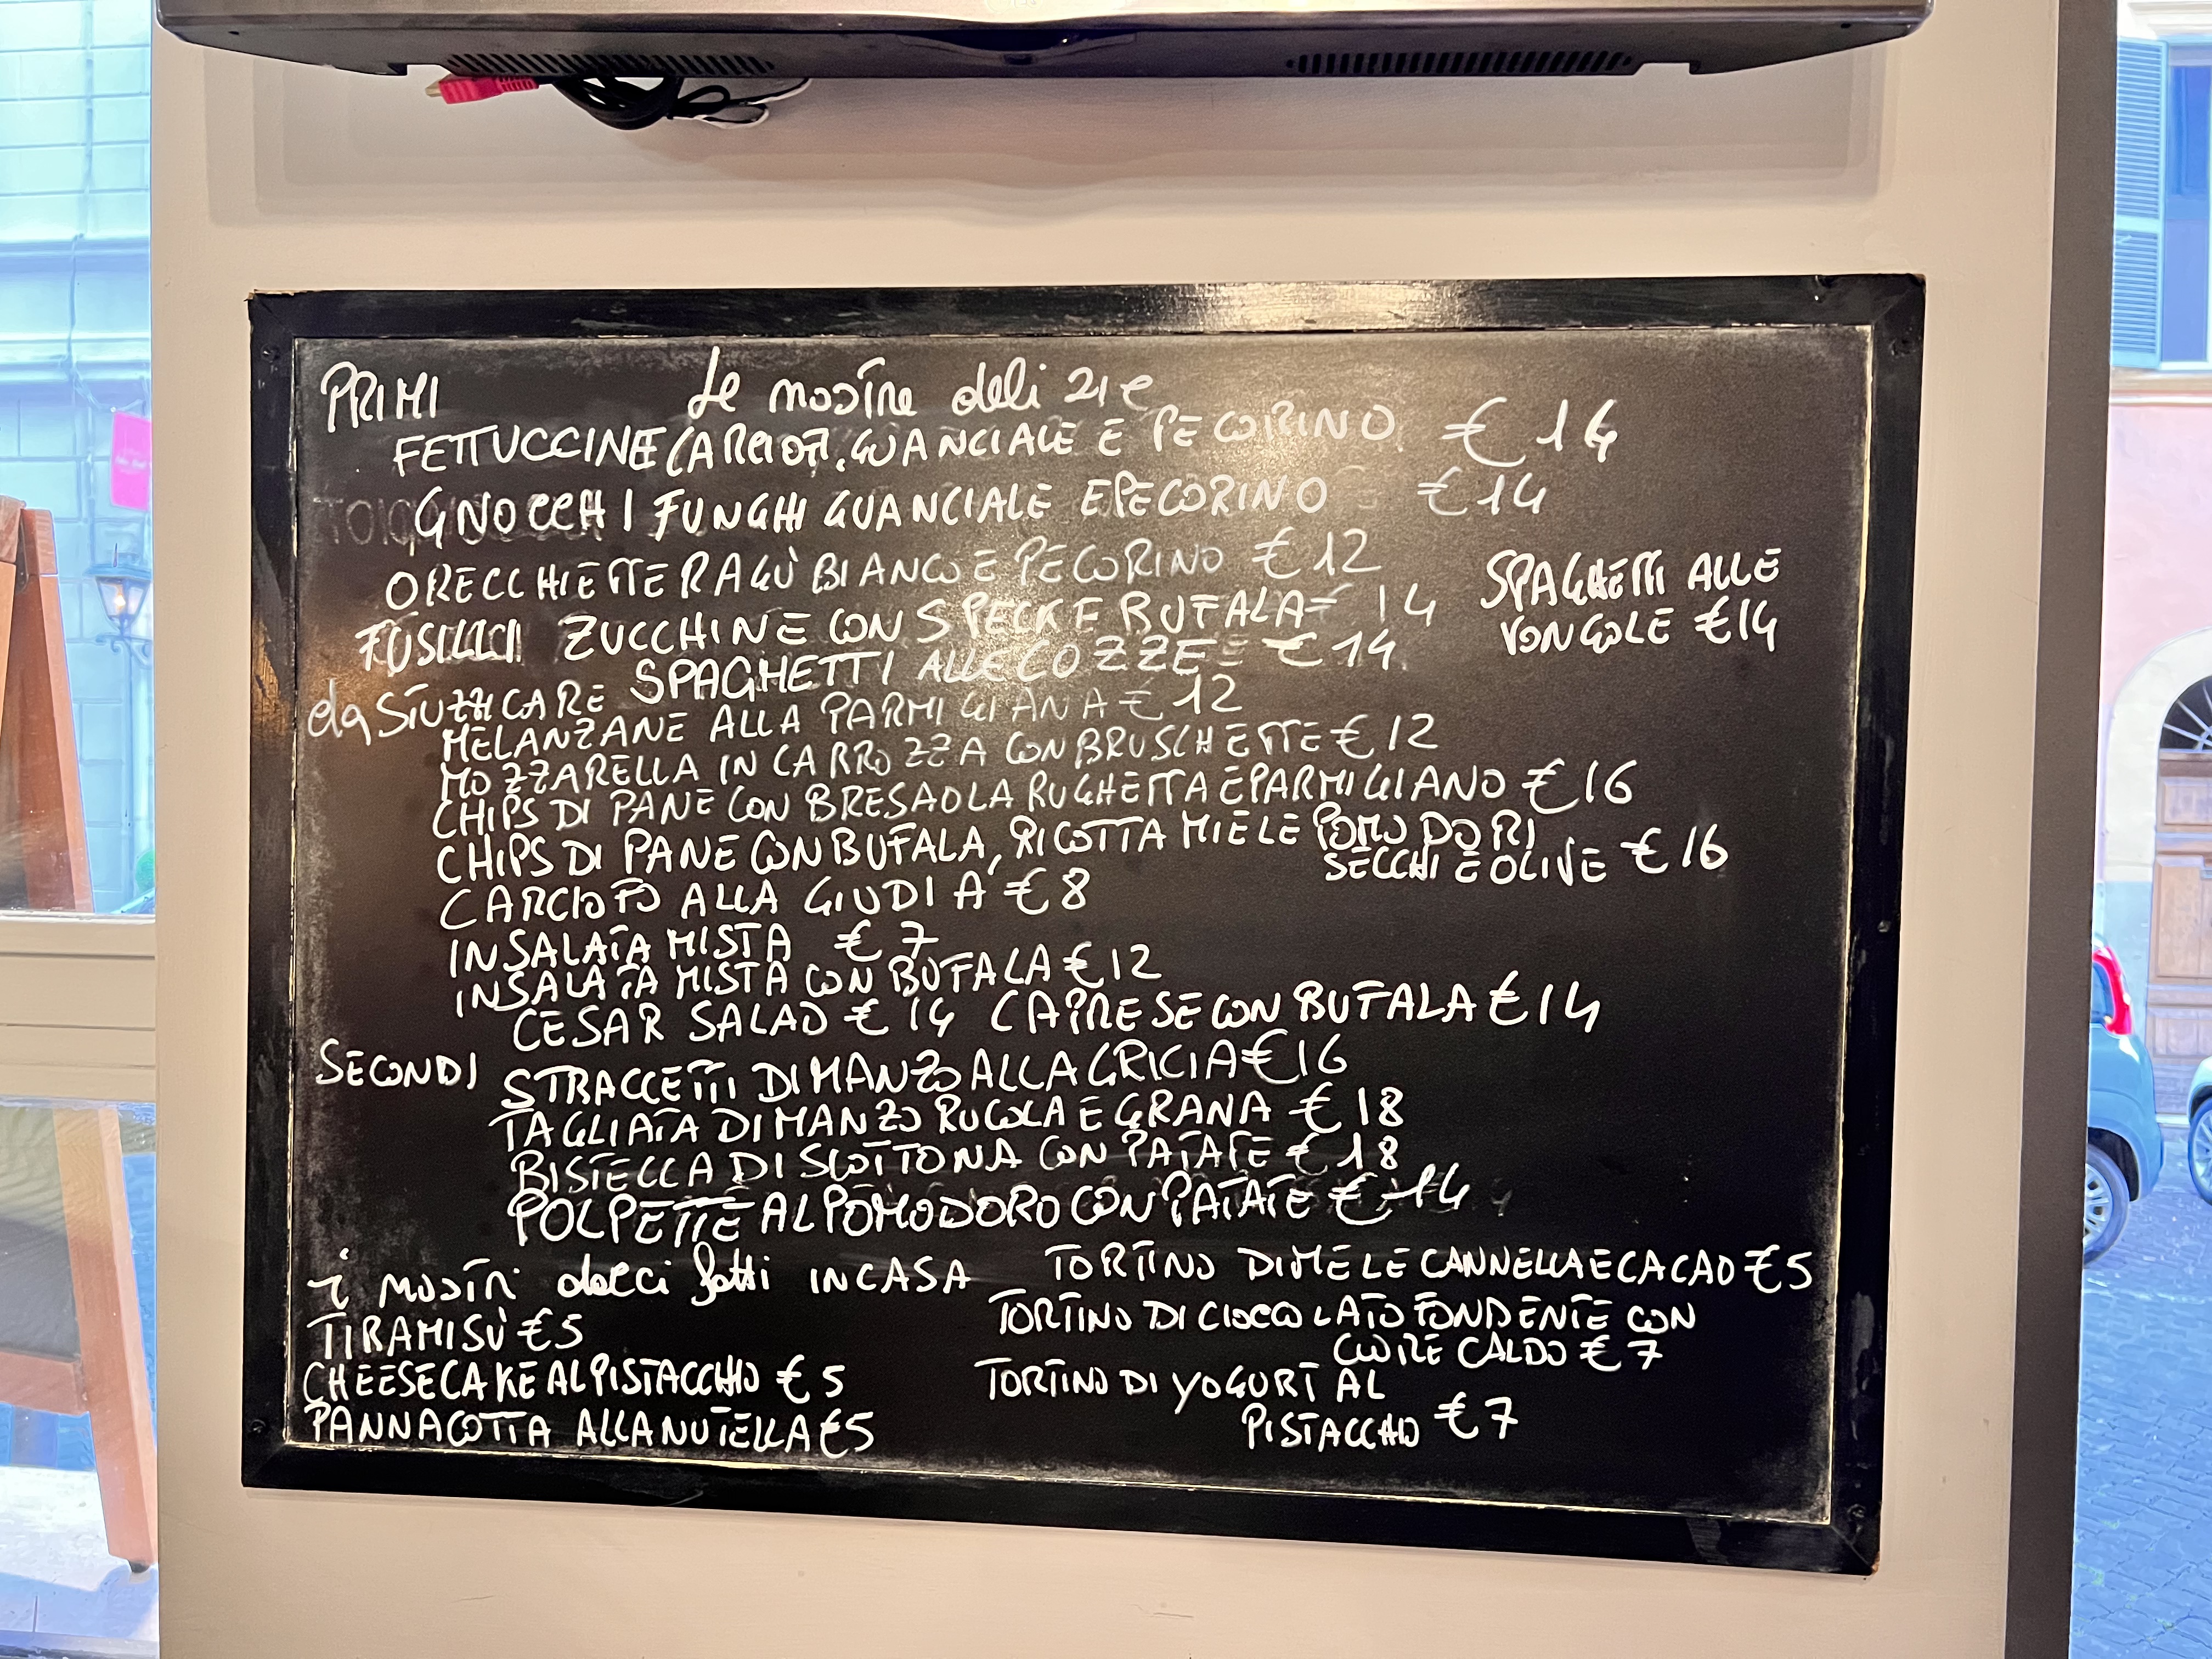 PRIMI Le nostre delizie
FETTUCCINE CARCIOFI, GUANCIALE E PECORINO € 14
GNOCCHI FUNGHI GUANCIALE E PECORINO € 14
ORECCHIETTE RAGÙ BIANCO E PECORINO € 12
SPAGHETTI ALLE
VONGOLE € 14
FUSILLI ZUCCHINE CON SPECK E BUFALA € 14
SPAGHETTI ALLE COZZE € 14
da STUZZICARE
MELANZANE ALLA PARMIGIANA € 12
MOZZARELLA IN CARROZZA CON BRUSCHETTE € 12
CHIPS DI PANE CON BRESAOLA RUGHETTA E PARMIGIANO € 16
CHIPS DI PANE CON BUFALA, RICOTTA MIELE POMODORI
SECCHI E OLIVE € 16
CARCIOFO ALLA GIUDIA € 8
INSALATA MISTA € 7
INSALATA MISTA CON BUFALA € 12
CESAR SALAD € 14 CAPRESE CON BUFALA € 14
SECONDI
STRACCETTI DI MANZO ALLA GRICIA € 16
TAGLIATA DI MANZO RUGOLA E GRANA € 18
BISTECCA DI SCOTTONA CON PATATE € 18
POLPETTE AL POMODORO CON PATATE € 14
i nostri dolci fatti IN CASA
TIRAMISÙ € 5
CHEESECAKE AL PISTACCHIO € 5
PANNACOTTA ALLA NUTELLA € 5
TORTINO DI MELE CANNELLA E CACAO € 5
TORTINO DI CIOCCOLATO FONDENTE CON
CUORE CALDO € 7
TORTINO DI YOGURT AL
PISTACCHIO € 7